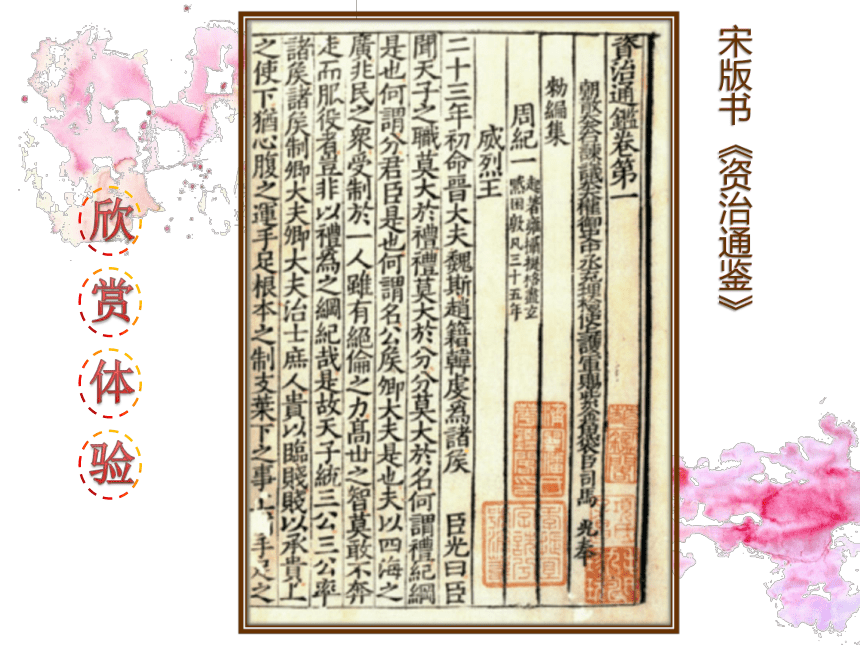 宋版书《资治通鉴》
資治通鑑卷第一
朝散大夫諫議大夫權御史中丞充理檢使護軍賜紫金魚袋臣司馬 光奉
勑編集
周紀一
起著雍攝提格盡玄
黓困敦凡三十五年
威烈王
二十三年初命晉大夫魏斯趙籍韓虔為諸侯 臣光曰臣
聞天子之職莫大於禮禮莫大於分分莫大於名何謂禮紀綱
是也何謂分君臣是也何謂名公侯卿大夫是也夫以四海之
廣兆民之衆受制於一人雖有絕倫之力高世之智莫敢不奔
走而服役者豈非以禮為之綱紀哉是故天子統三公三公率
諸侯諸侯制卿大夫卿大夫治士庶人貴以臨賤賤以承貴上
之使下猶心腹之運手足根本之制支葉下之事上
欣
赏
体
验